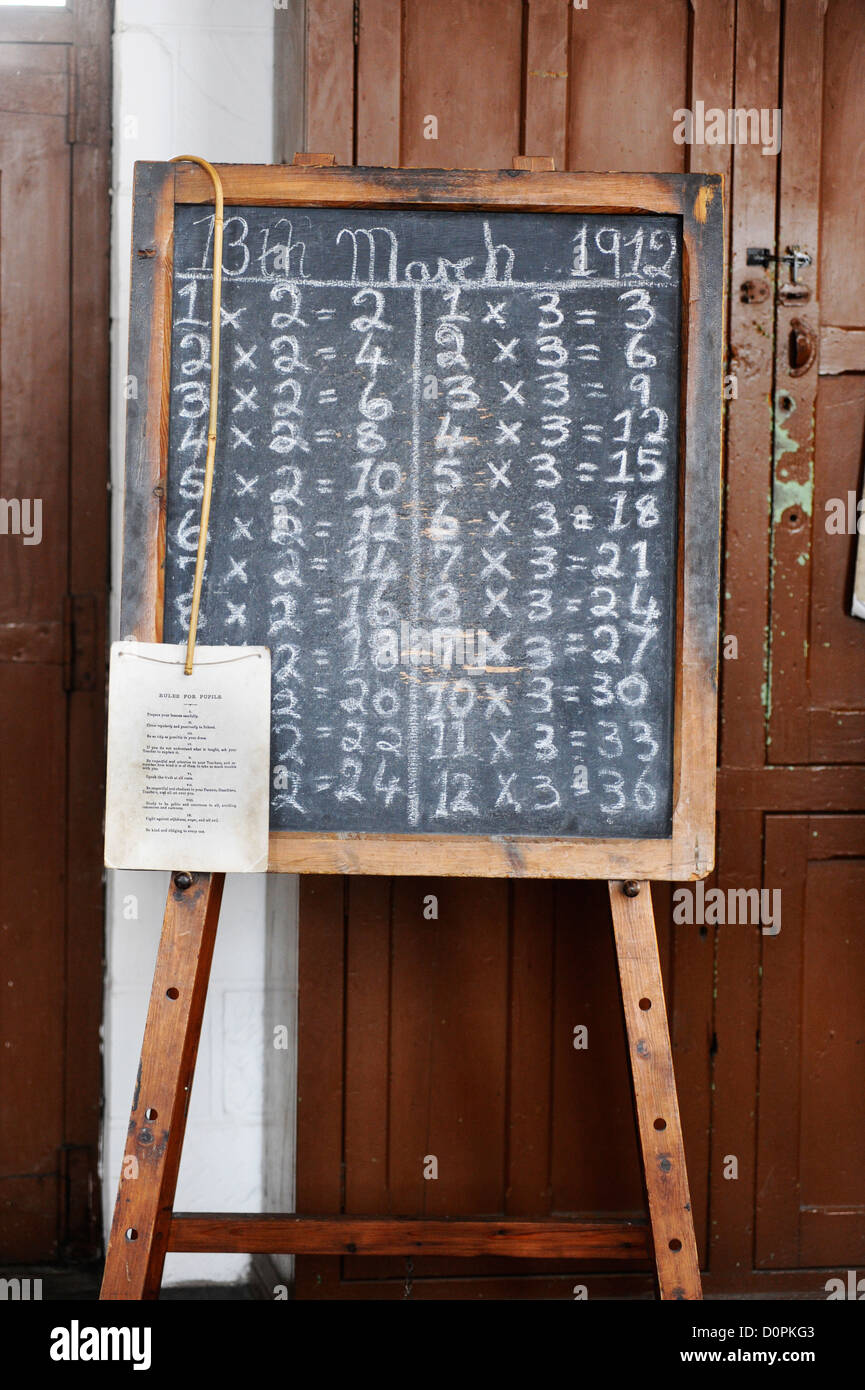 13th March 1912
1 x 2 = 2
2 x 2 = 4
3 x 2 = 6
4 x 2 = 8
5 x 2 = 10
6 x 2 = 12
7 x 2 = 14
8 x 2 = 16
2 = 18
2 = 20
2 = 22
2 = 24
1 x 3 = 3
2 x 3 = 6
3 x 3 = 9
4 x 3 = 12
5 x 3 = 15
6 x 3 = 18
7 x 3 = 21
8 x 3 = 24
9 x 3 = 27
10 x 3 = 30
11 x 3 = 33
12 x 3 = 36
RULES FOR PUPILS.
I.
Prepare your lessons carefully.
II.
Come regularly and punctually to School.
III.
Be as tidy as possible in your dress.
IV.
If you do not understand what is taught, ask your
Teacher to explain it.
V.
Be respectful and attentive to your Teachers, and re-
member how kind it is of them to take so much trouble
with you.
VI.
Speak the truth at all costs.
VII.
Be respectful and obedient to your Parents, Guardians,
Teachers, and all set over you.
VIII.
Study to be polite and courteous to all, avoiding
coarseness and rudeness.
IX.
Fight against selfishness, anger, and all evil.
X.
Be kind and obliging to every one.
alamy
alamy
Image ID: D0PKG3
www.alamy.com